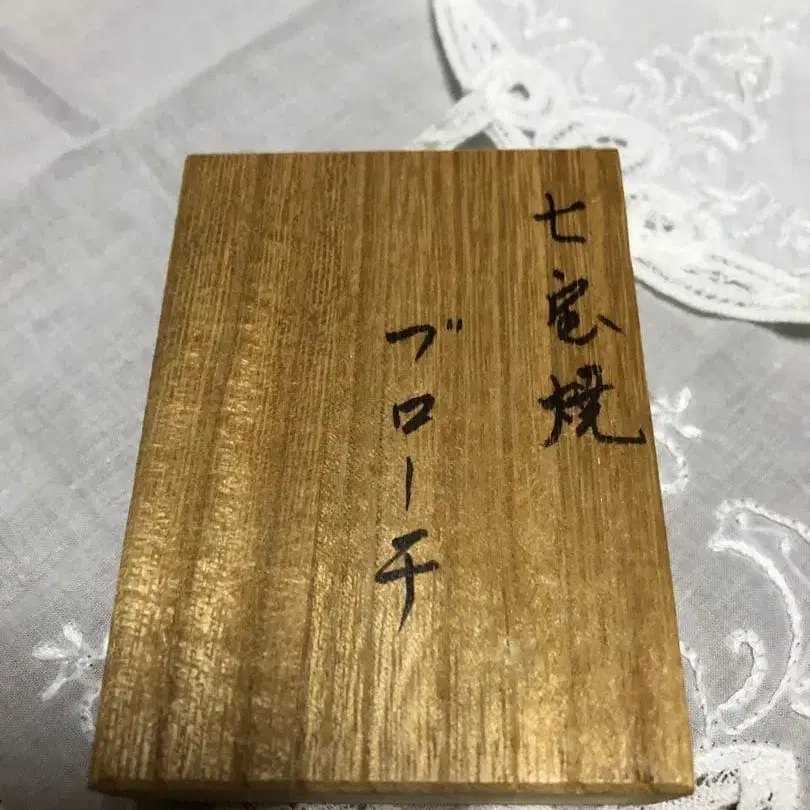 七宝焼
ブローチ